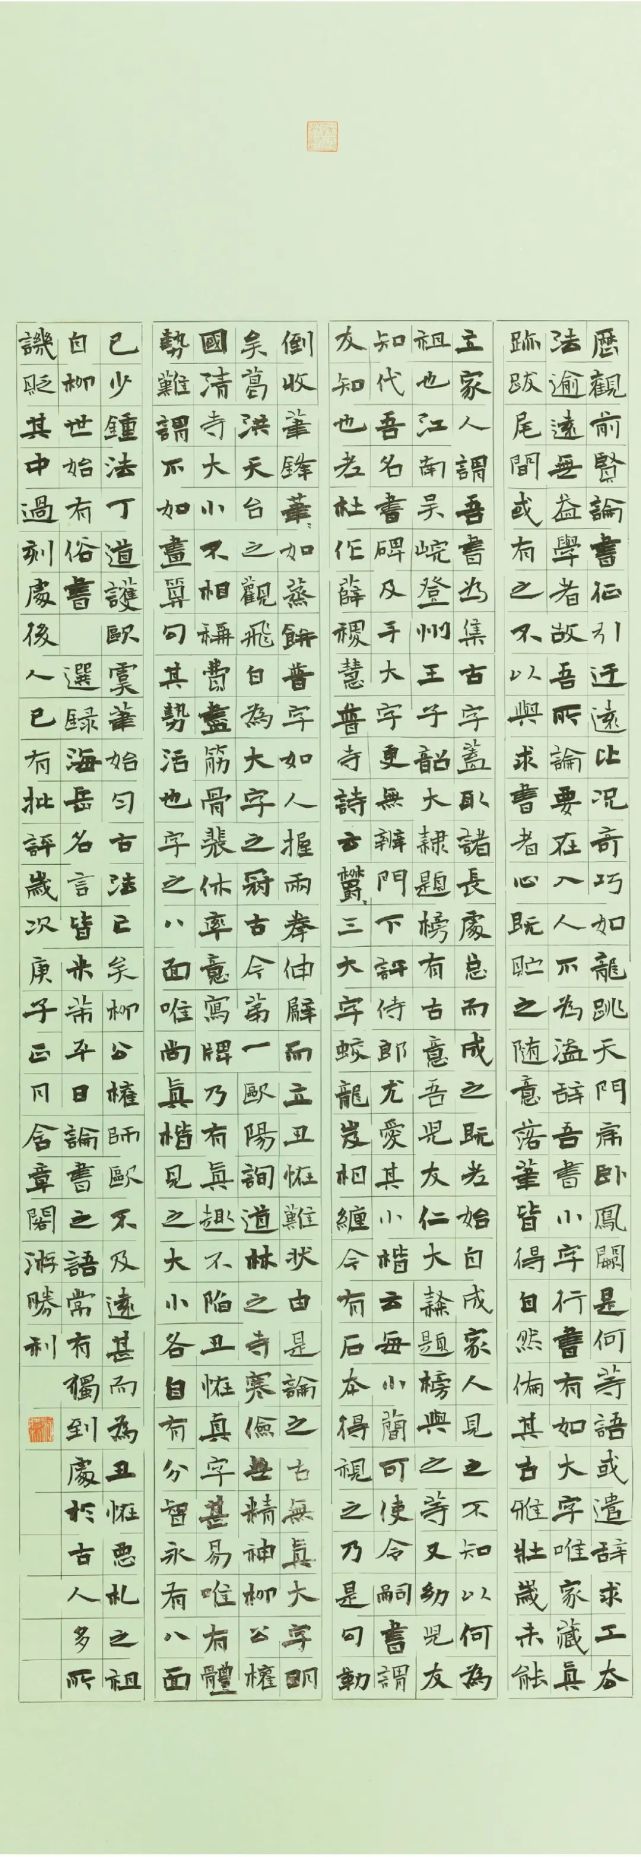 歷觀前賢論書征引迂遠比況奇巧如龍跳天門虎卧鳳闕是何等語或遣辞求工去
法逾遠無益學者故吾所論要在入人不為溢辞吾書小字行書有如大字唯家藏真
跡跋尾間或有之不以與求書者心既貯之随意落筆皆得自然備其古雅壯歲未能
立家人謂吾書為集古字蓋取諸長處總而成之既老始自成家人見之不知以何為
祖也江南吴皖登州王子韶大隸題榜有古意吾兒友仁大隸題榜與之等又幼兒友
知代吾名書碑及手大字更無辨門下評侍郎尤愛其小楷云每小簡可使令嗣書謂
友知也老杜作薛稷慧普寺詩云鬱〻三大字蛟龍岌相纏今有石本得視之乃是勾勒
倒收筆鋒筆〻如蒸餅普字如人握兩拳伸臂而立丑怪難狀由是論之古無真大字明
矣葛洪天台之觀飛白為大字之冠古今第一歐陽詢道林之寺寒儉無精神柳公權
國清寺大小不相稱費盡筋骨裴休率意寫牌乃有真趣不陷丑怪真字甚易唯有體
勢難謂不如畫算勻其勢活也字之八面唯尚真楷見之大小各自有分智永有八面
已少鍾法丁道護歐虞筆始勻古法亡矣柳公權師歐不及遠甚而為丑怪惡札之祖
自柳世始有俗書 選録海岳名言皆米芾平日論書之語常有獨到處於古人多所
譏貶其中過刻處後人已有批評歲次庚子正月含章閣游勝利